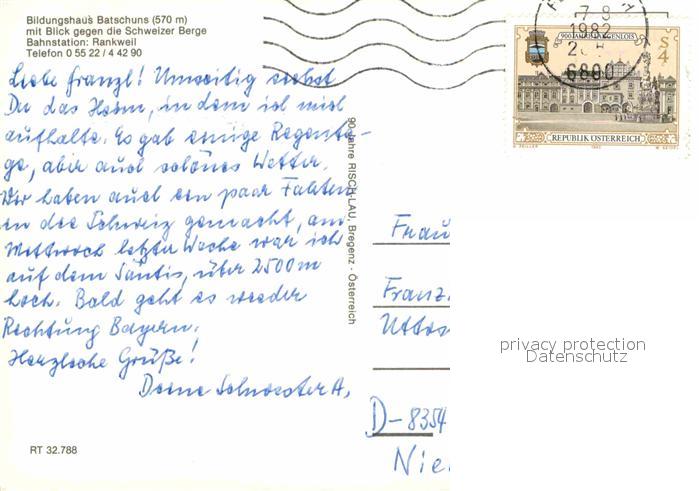 Bildungshaus Batschuns (570 m)
mit Blick gegen die Schweizer Berge
Bahnstation: Rankweil
Telefon 0 55 22 / 4 42 90
Liebe Franzl! Umseitig siehst
Du das Heim, in dem ich mich
aufhalte. Es gab einige Regenta-
ge, aber auch schönes Wetter.
Wir haben auch ein paar Fahrten
in die Schweiz gemacht, am
Mittwoch letzter Woche war ich
auf dem Säntis, über 2500 m
hoch. Bald geht es wieder
Richtung Bayern.
Herzliche Grüße!
Deine Schwester A.
RT 32.788
90 Jahre RISCH-LAU, Bregenz - Österreich
1982
6800
900 JAHRE GARS
S 4
REPUBLIK ÖSTERREICH
ZEILLER
1982
Frau
Franz.
Uttos
D-8354
Nie
privacy protection
Datenschutz